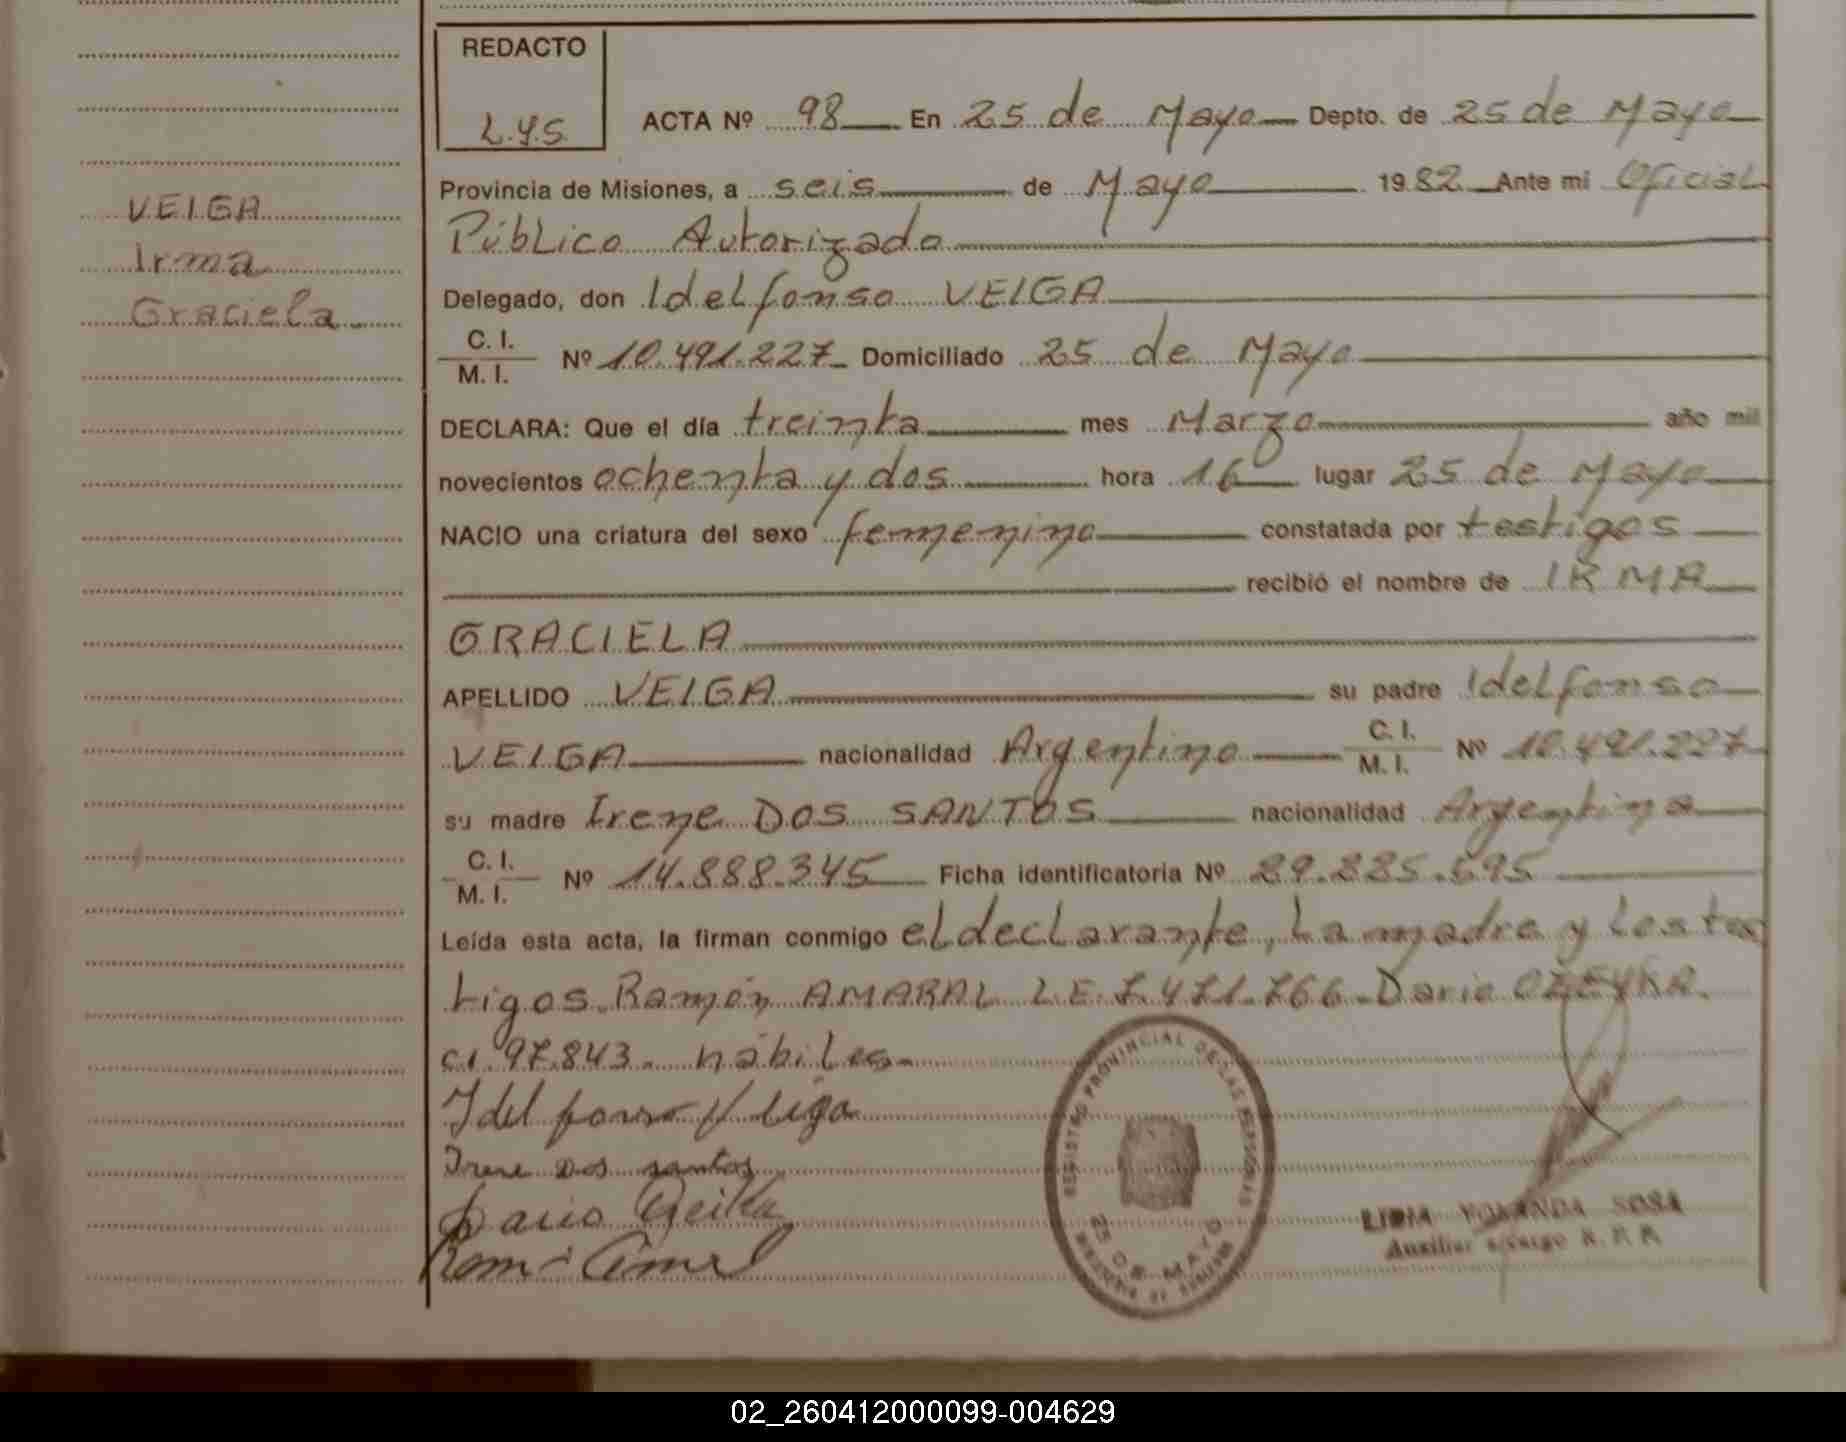 REDACTO
L.Y.S.
ACTA Nº 98 En 25 de Mayo Depto. de 25 de Mayo
Provincia de Misiones, a seis de Mayo 1982 Ante mi Oficial
Público Autorizado
Delegado, don Idelfonso VEIGA
C. I.
M. I. Nº 10.491.227 Domiciliado 25 de Mayo
DECLARA: Que el día treinta mes Marzo año mil
novecientos ochenta y dos hora 16 lugar 25 de Mayo
NACIO una criatura del sexo femenino constatada por testigos
recibió el nombre de IRMA
GRACIELA
APELLIDO VEIGA su padre Idelfonso
VEIGA nacionalidad Argentino C. I. M. I. Nº 10.491.227
su madre Irene DOS SANTOS nacionalidad Argentina
C. I.
M. I. Nº 14.888.345 Ficha identificatoria Nº
Leída esta acta, la firman conmigo el declarante, La madre y Los tes
tigos. Ramón AMARAL L.E. Dario
C.I. 97.843. hábiles
Idelfonso Veiga
Irene Dos santos
Dario
VEIGA
Irma
Graciela
REGISTRO PROVINCIAL DE LAS PERSONAS
25 DE MAYO
LIDIA YOLANDA SOSA
Auxiliar a/cargo R. P. P.
02_260412000099-004629